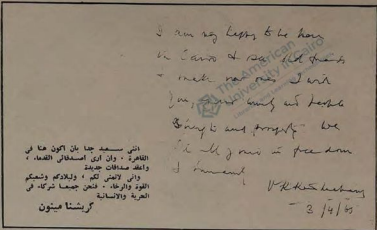 I am very happy to be here
in Cairo & see old friends
& make new ones I wish
you, your country and people
strength and prosperity. We
are all yours in freedom
& humanity
V K Krishna Menon
3/4/
The American
University in Cairo
انني سعيد جدا بان اكون هنا في
القاهرة ، وان ارى اصدقائي القدماء ،
واعقد صداقات جديدة
واني لاتمنى لكم ، ولبلادكم وشعبكم
القوة والرخاء ، فنحن جميعا شركاء في
الحرية والانسانية
كريشنا مينون